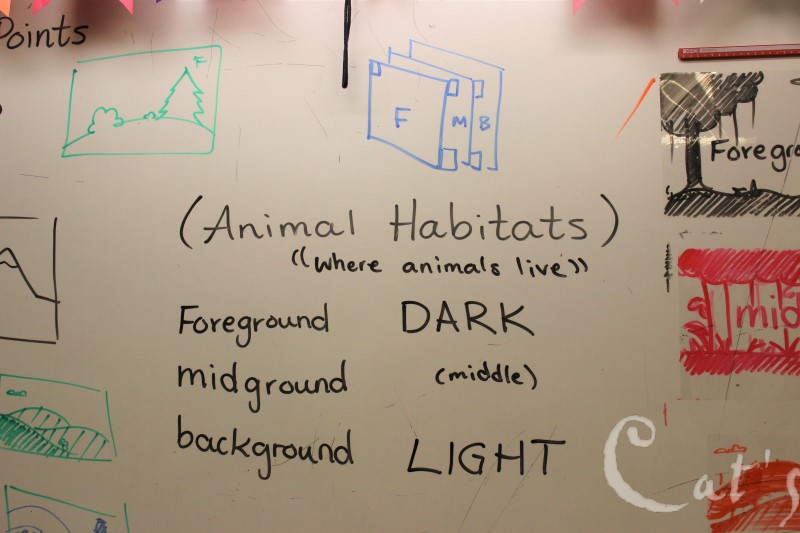 Points
F
F M B
Foregro
(Animal Habitats)
((where animals live))
mid
Foreground DARK
midground (middle)
background LIGHT
Cat's